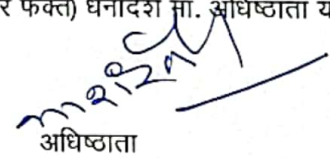 र फक्त) धनादेश मा. अधिष्ठाता य
अधिष्ठाता